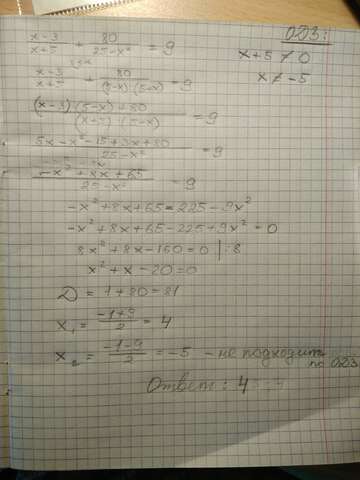 ОДЗ:
(x-3)/(x+5) + 80/(25-x²) = 9
x+5 ≠ 0
x ≠ -5
(x-3)/(x+5) + 80/((5-x)(5+x)) = 9
((x-3)(5-x)+80)/((x+5)(5-x)) = 9
(5x-x²-15+3x+80)/(25-x²) = 9
(-x²+8x+65)/(25-x²) = 9
-x²+8x+65=225-9x²
-x²+8x+65-225+9x²=0
8x²+8x-160=0 |:8
x²+x-20=0
D = 1+80=81
x₁ = (-1+9)/2 = 4
x₂ = (-1-9)/2 = -5 - не подходит
по ОДЗ
Ответ: 4